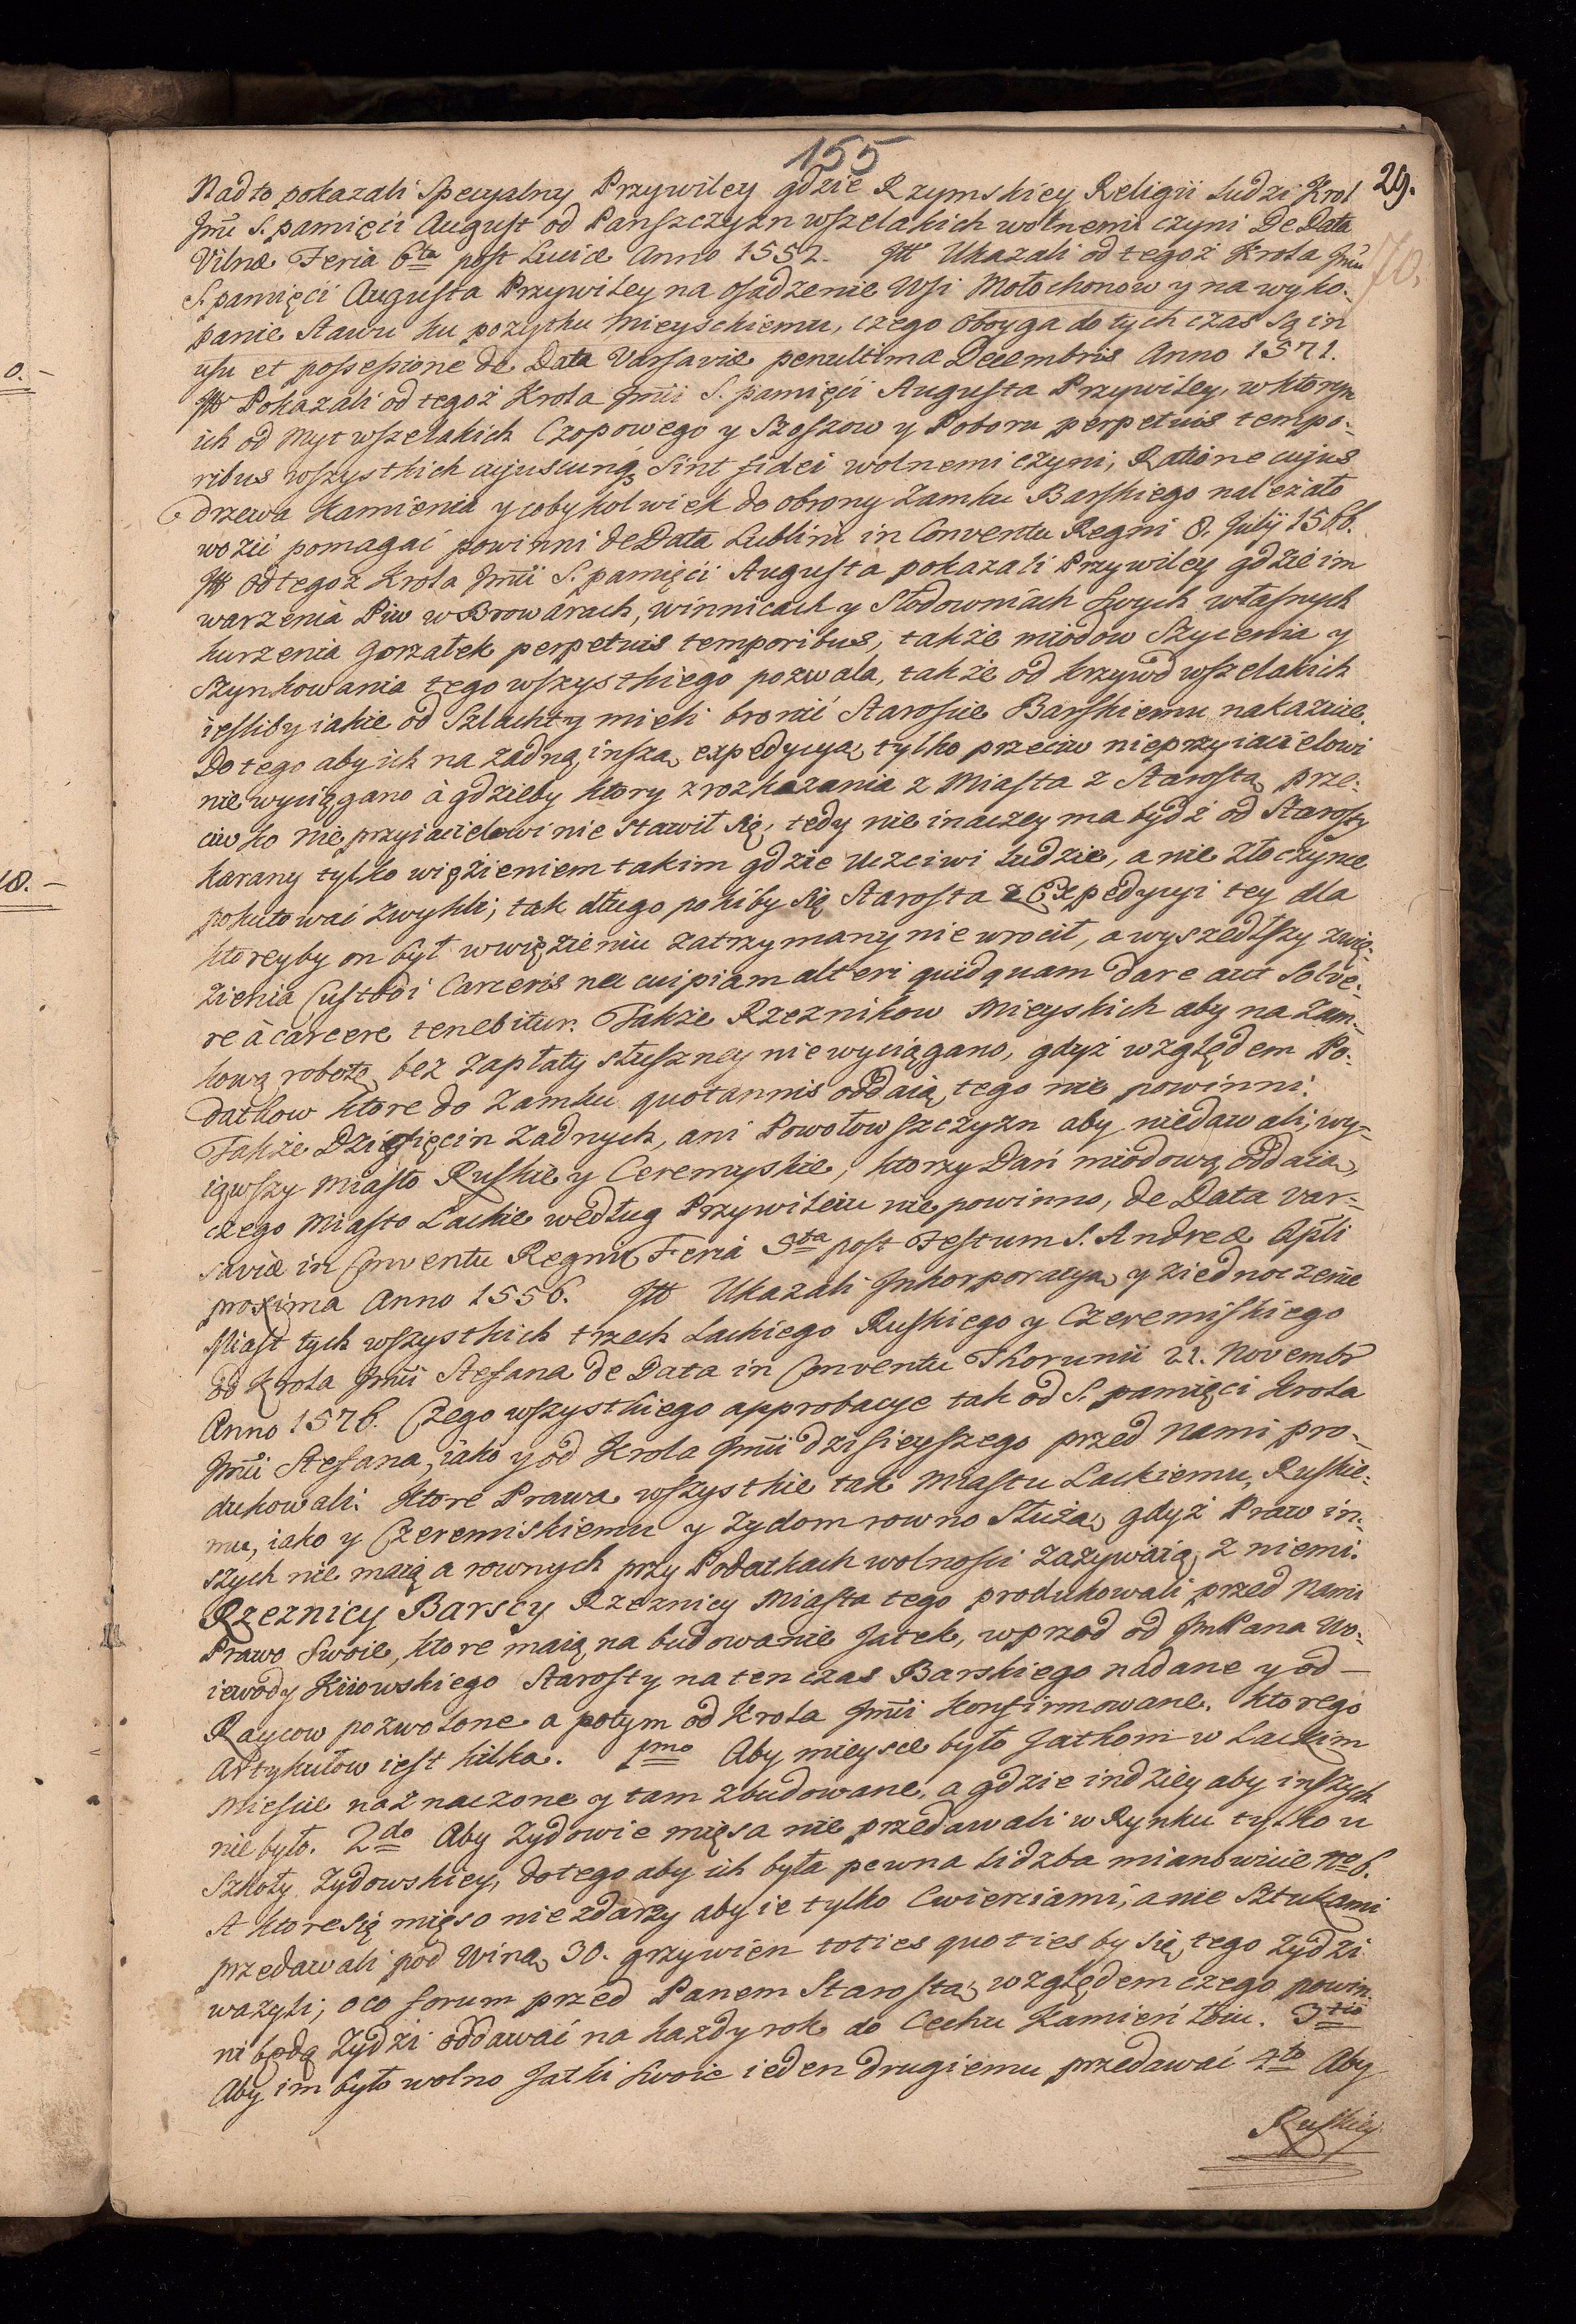 155
29.
Nadto pokazali Specyalny Przywiley gdzie Rzymskiey Religii Ludzi Krol
Jmći S. pamięci August od Panszczyzn wszelakich wolnemi czyni De Data
Vilnæ Feria 6ta post Luciæ Anno 1552. Itt Ukazali od tegoż Krola Jmći
70.
S. pamięci Augusta Przywiley na osadzenie Wsi Mołochonow y na wyko-
panie Stawu ku pozytku Mieyskiemu, czego oboyga do tych czas są in
usu et possessione de Data Varsaviæ penultima Decembris Anno 1571.
Itt Pokazali od tegoż Krola Jmći S. pamięci Augusta Przywiley, w ktorym
ich od Myt wszelakich Czopowego y Szoszow y Poboru perpetuis tempo-
ribus wszystkich cujuscunq3 Sint fidei wolnemi czyni, Ratione cujus
drzewa Kamienia y cobykolwiek do obrony Zamku Barskiego należało
wozić pomagać powinni de Data Lublini in Conventu Regni 8. Julij 1566.
Itt od tegoż Krola Jmći S. pamięci Augusta pokazali Przywiley gdzie im
warzenia Piw w Browarach, winnicach y Słodowniach Swych własnych
kurzenia gorzałek perpetuis temporibus, także miodow Sycenia y
Szynkowania tego wszystkiego pozwala, także od krzywd wszelakich
iesliby iakie od Szlachty mieli bronić Staroscie Barskiemu nakazuie.
Do tego aby ich na żadną inszą expedycyą tylko przeciw nieprzyiacielowi
nie wyciągano à gdzieby ktory z rozkazania z Miasta z Starostą prze-
ciwko nieprzyiacielowi nie stawił się, tedy nie inaczey ma bydź od Starosty
karany tylko więzieniem takim gdzie Uczciwi Ludzie, a nie złoczynce
pokutować zwykli; tak długo pokiby się Starosta z Expedycyi tey dla
ktoreyby on był w więzieniu zatrzymany nie wrocił, a wyszedłszy z wię-
zienia Custodi Carceris nec cuipiam alteri quidquam dare aut Solve-
re à carcere tenebitur. Także Rzeznikow Mieyskich aby na Zam-
kową robotę bez zapłaty słuszney nie wyciągano, gdyż względem Po-
datkow ktore do Zamku quotannis oddaią tego nie powinni.
Także Dziesięcin żadnych, ani Powołowszczyzn aby nie dawali, wy-
iąwszy Miasto Ruskie y Ceremyskie, ktorzy Dań miodową oddaią,
czego Miasto Lackie według Przywileiu nie powinno, de Data Var-
saviæ in Conventu Regni Feria 3ta post Festum S. Andreæ Apli
proxima Anno 1556. Itt Ukazali Inkorporacyą y ziednoczenie
Miast tych wszystkich trzech Lackiego Ruskiego y Czeremiskiego
od Krola Jmći Stefana de Data in Conventu Thorunii 21. Novembr
Anno 1576. Czego wszystkiego approbacye tak od S. pamięci Krola
Jmći Stefana, iako y od Krola Jmći dzisieyszego przed Nami pro-
dukowali. Ktore Prawa wszystkie tak Miastu Lackiemu, Ruskie-
mu, iako y Czeremiskiemu y Zydom rowno Służą, gdyż Praw in-
szych nie maią a rownych przy Podatkach wolnosci zażywaią z niemi.
Rzeznicy Barscy Rzeznicy Miasta tego produkowali przed Nami
Prawo Swoie, ktore maią na budowanie Jatek, wprzod od JmPana Wo-
iewody Kiiowskiego Starosty na ten czas Barskiego nadane y od
Raycow pozwolone a potym od Krola Jmći konfirmowane. Ktorego
Artykułow iest kilka. 1mo Aby mieysce było Jatkom w Lackim
Miescie naznaczone y tam zbudowane, a gdzie indziey aby inszych
nie było. 2do Aby Zydowie mięsa nie przedawali w Rynku tylko u
Szkoły Zydowskiey, do tego aby ich była pewna lidzba mianowicie No 6.
A ktore się mięso nie zdarzy aby ie tylko Cwierciami, a nie Sztukami
przedawali pod Winą 30. grzywien toties quoties by się tego Zydzi
ważyli; o co forum przed Panem Starostą, względem czego powin-
ni będą Zydzi oddawać na każdy rok do Cechu Kamień Łoiu. 3tio
Aby im było wolno Jatki Swoie ieden drugiemu przedawać 4to Aby
Ruskiey
0. –
18. –